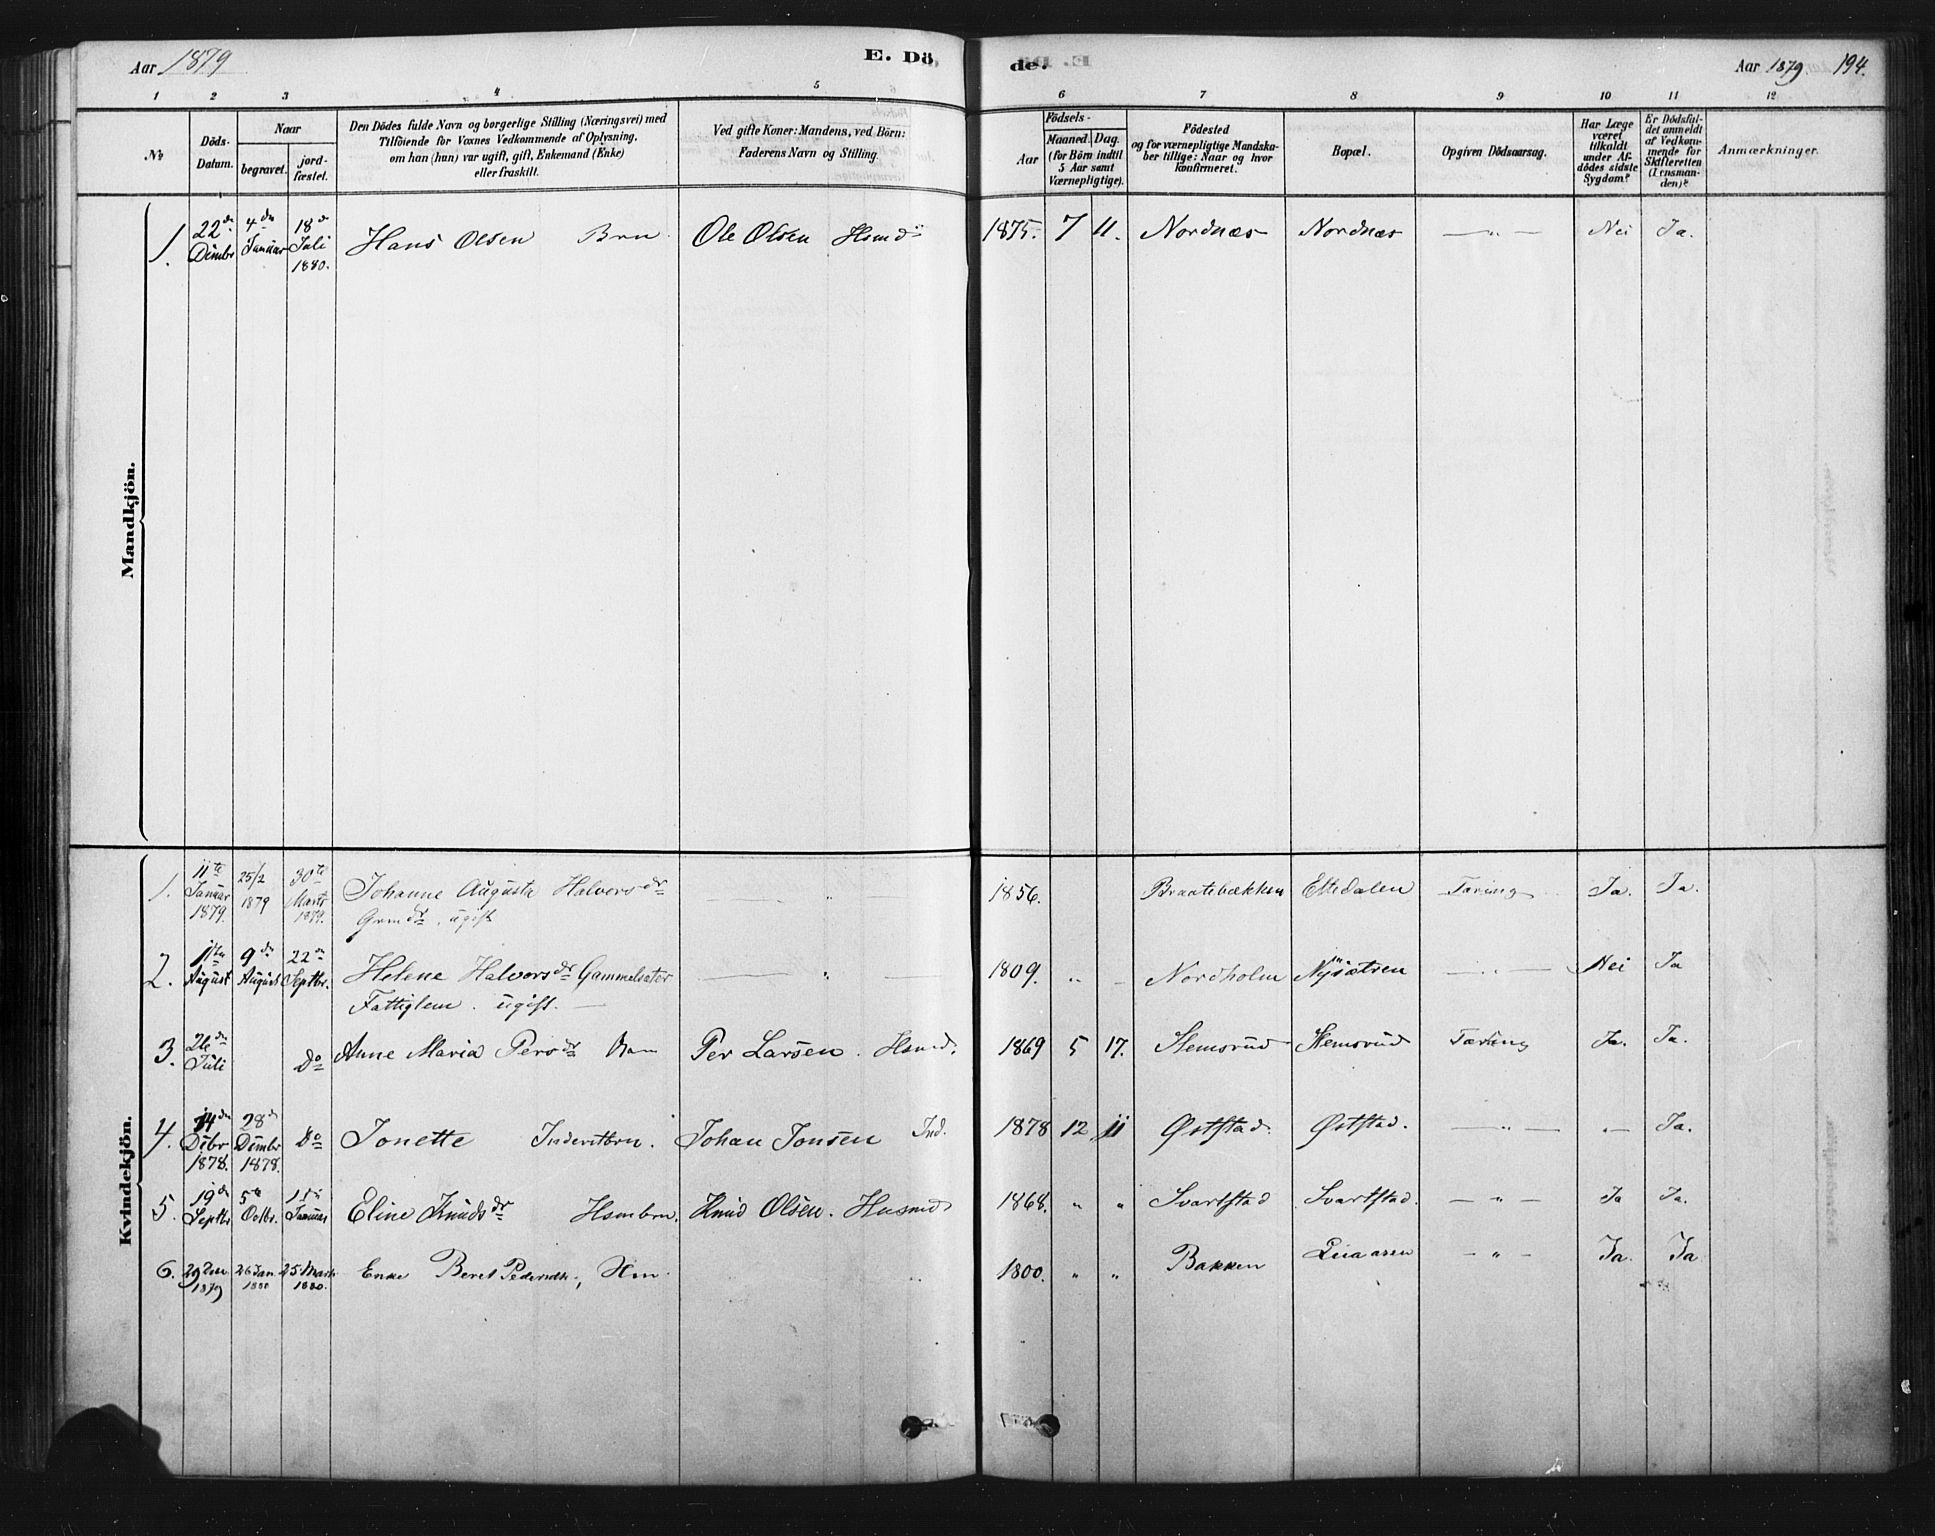 Aar 1879
E. Dö
de.
Aar 1879
194.
1 2 3 4 5 6 7 8 9 10 11 12
No
Döds-
Datum.
Naar
begravet.
jord-
fæstet.
Den Dödes fulde Navn og borgerlige Stilling (Næringsvei) med
Tilföiende for Voxnes Vedkommende af Oplysning,
om han (hun) var ugift, gift, Enkemand (Enke)
eller fraskilt.
Ved gifte Koner: Mandens, ved Börn:
Faderens Navn og Stilling.
Födsels-
Aar
Maaned. Dag.
(for Börn indtil
5 Aar samt
Værnepligtige).
Födested
og for værnepligtige Mandska-
ber tillige: Naar og hvor
konfirmeret.
Bopæl.
Opgiven Dödsaarsag.
Har Læge
været
tilkaldt
under Af-
dödes sidste
Sygdom?
Er Dödsfal-
det anmeldt
af Vedkom-
mende for
Skifteretten
(Lensman-
den)?
Anmærkninger.
Mandkjön.
1. 22de Dcmbr 4de Januar 18de Juli 1880. Hans Olsen Brn Ole Olsen Hsmd 1875. 7 11. Nordnæs Nordnæs — " — Nei Ja.
Kvindekjön.
1. 11te Januar 1879. 25/2 1879 30te Marts 1879. Johanne Augusta Halvorsdr — " — 1856. Braatebækken Ettedalen Tæring Ja. Ja.
Grmdr. ugift
2. August 9de August 22de Septbr. Helene Halvorsdr Gammelsæter — " — 1809. " — Nordholm Nysætren — " — Nei Ja
Fattiglem. ugift. —
3. 26de Juli Do Anne Maria Persdr Per Larsen. Hsmd. 1869 5 17. Stemsrud Stemsrud Tæring Ja. Ja.
4. 14de Dcbr 1878. 28de Dcmbr 1878. Do Jonette Inderstbrn. Johan Jonsen Ind. 1878 12 11 Øststad. Øststad. — " — " — Ja.
5. 19de Septbr 5te Octbr. Januar Eline Knudsdr Hsmbrn. Knud Olsen. Husmd 1868. " " Svartstad Svartstad. — " — Ja Ja.
6. 29 Dec. 1879 26 Jan. 1880 25 Marts 1880. Enke Beret Pedersdtr, " 1800. " " Bakken — " — Ja. Ja